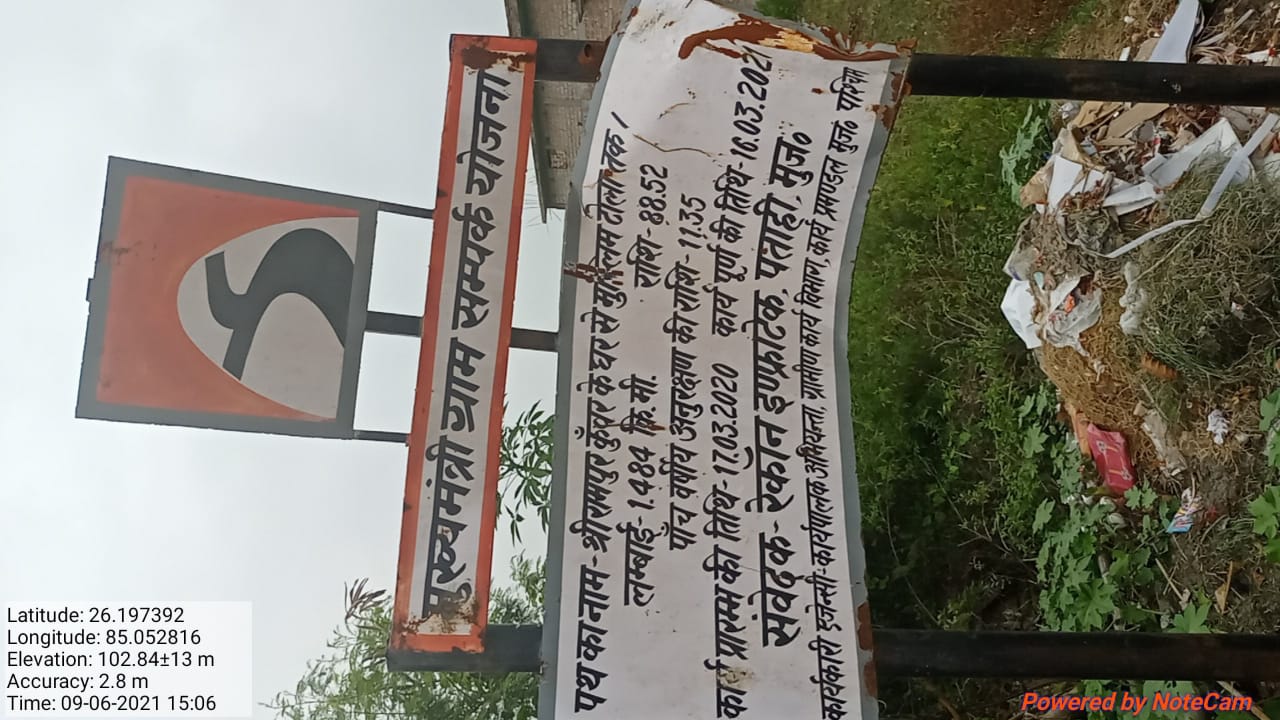 मुख्यमंत्री ग्राम सम्पर्क योजना
पथ का नाम- श्रीरामपुर कुँवर के घर से मुस्लिम टोला तक।
लम्बाई- 1.484 कि.मी. राशि- 88.52
पाँच वर्षीय अनुरक्षण की राशि- 11.35
कार्य प्रारम्भ की तिथि- 17.03.2020 कार्य पूर्ण की तिथि- 16.03.2021
संवेदक- रेकॉन इण्फ्राटेक, पताही, मुज॰
कार्यकारी एजेन्सी-कार्यपालक अभियन्ता, ग्रामीण कार्य विभाग, कार्य प्रमण्डल मुज॰ पश्चि
Latitude: 26.197392
Longitude: 85.052816
Elevation: 102.84±13 m
Accuracy: 2.8 m
Time: 09-06-2021 15:06
Powered by NoteCam